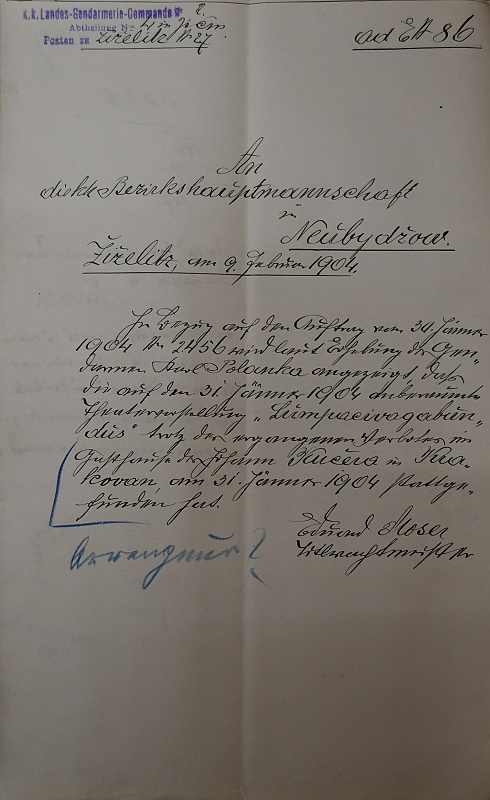 K.k. Landes-Gendarmerie-Commando Nr 2.
Abtheilung Nr 4 in Jičín
Posten zu Žiželitz Nr. 27
ad E. Nr 86
An
die k.k. Bezirkshauptmannschaft
in
Neubydžow.
Žiželitz, am 9. Februar 1904.
In Bezug auf den Auftrag vom 30. Jänner
1904 Nr. 2456 wird laut Erhebung des Gen-
darmen Karl Polanka angezeigt, daß
die auf den 31. Jänner 1904 anberaumte
Theatervorstellung „Lumpacivagabun-
dus" trotz des ergangenen Verbotes im
Gasthause des Johann Kučera in
am 31. Jänner 1904 stattge-
funden hat.
Eduard Moser
Arrangeur?